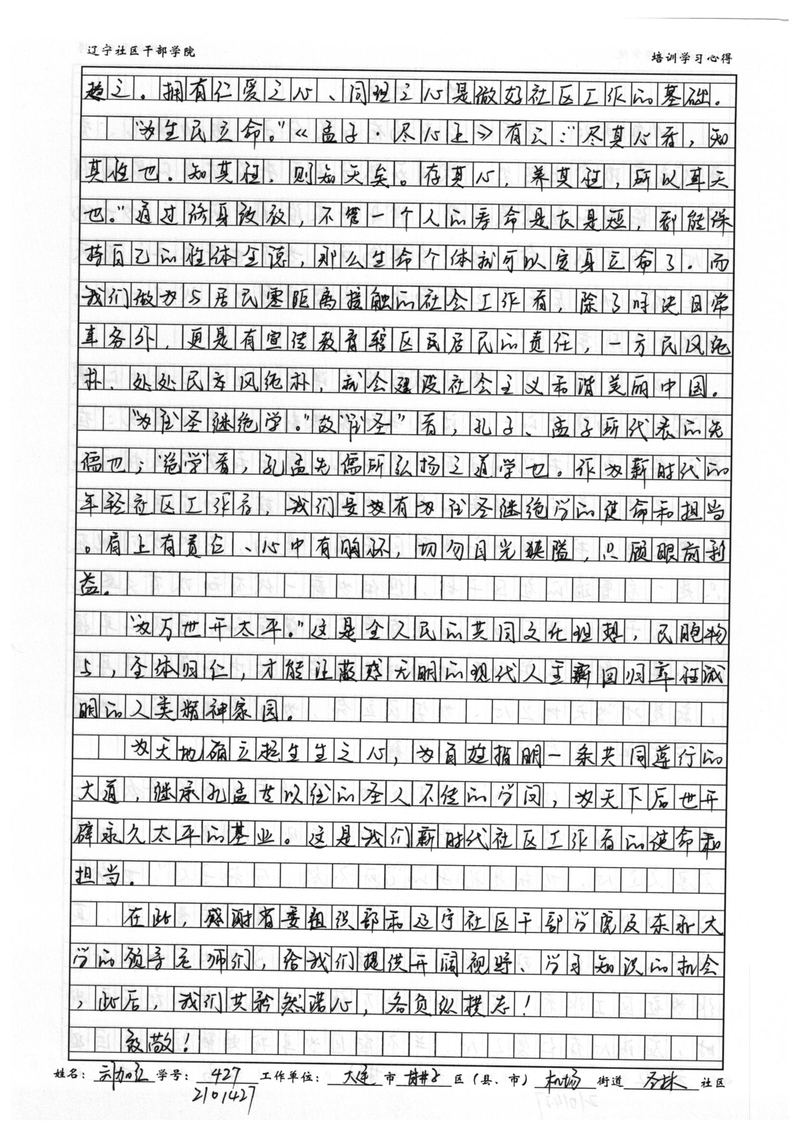 辽宁社区干部学院
培训学习心得
趋之。拥有仁爱之心、同理之心是做好社区工作的基础。
"为生民立命。"《孟子·尽心上》有云:"尽其心者,知
其性也。知其性,则知天矣。存其心,养其性,所以事天
也。"通过修身致教,不管一个人的寿命是长是短,都能保
持自己的性体全德,那么生命个体就可以安身立命了。而
我们做为与居民零距离接触的社会工作者,除了解决日常
事务外,更是有宣传教育辖区居民的责任,一方民风纯
朴、处处民风纯朴,就会建设社会主义和谐美丽中国。
"为往圣继绝学。"故"往圣"者,孔子、孟子所代表的先
儒也;"绝学"者,孔孟先儒所弘扬之道学也。作为新时代的
年轻社区工作者,我们要有为往圣继绝学的使命和担当
。肩上有责任、心中有胸怀,切勿目光狭隘,只顾眼前利
益。
"为万世开太平。"这是全人民的共同文化理想,民胞物
与,全体归仁,才能让蓝愁无明的现代人重新回归本性诚
明的人类精神家园。
为天地确立起生生之心,为百姓指明一条共同遵行的
大道,继承孔孟等以往的圣人不传的学问,为天下后世开
辟永久太平的基业。这是我们新时代社区工作者的使命和
担当。
在此,感谢省委组织部和辽宁社区干部学院及东北大
学的领导老师们,给我们提供开阔视野、学习知识的机会
,此后,我们共矜然诺心,各负纵横志!
致敬!
姓名: 学号: 427 工作单位: 大连 市 甘井子 区(县、市) 机场 街道 社区
2101427